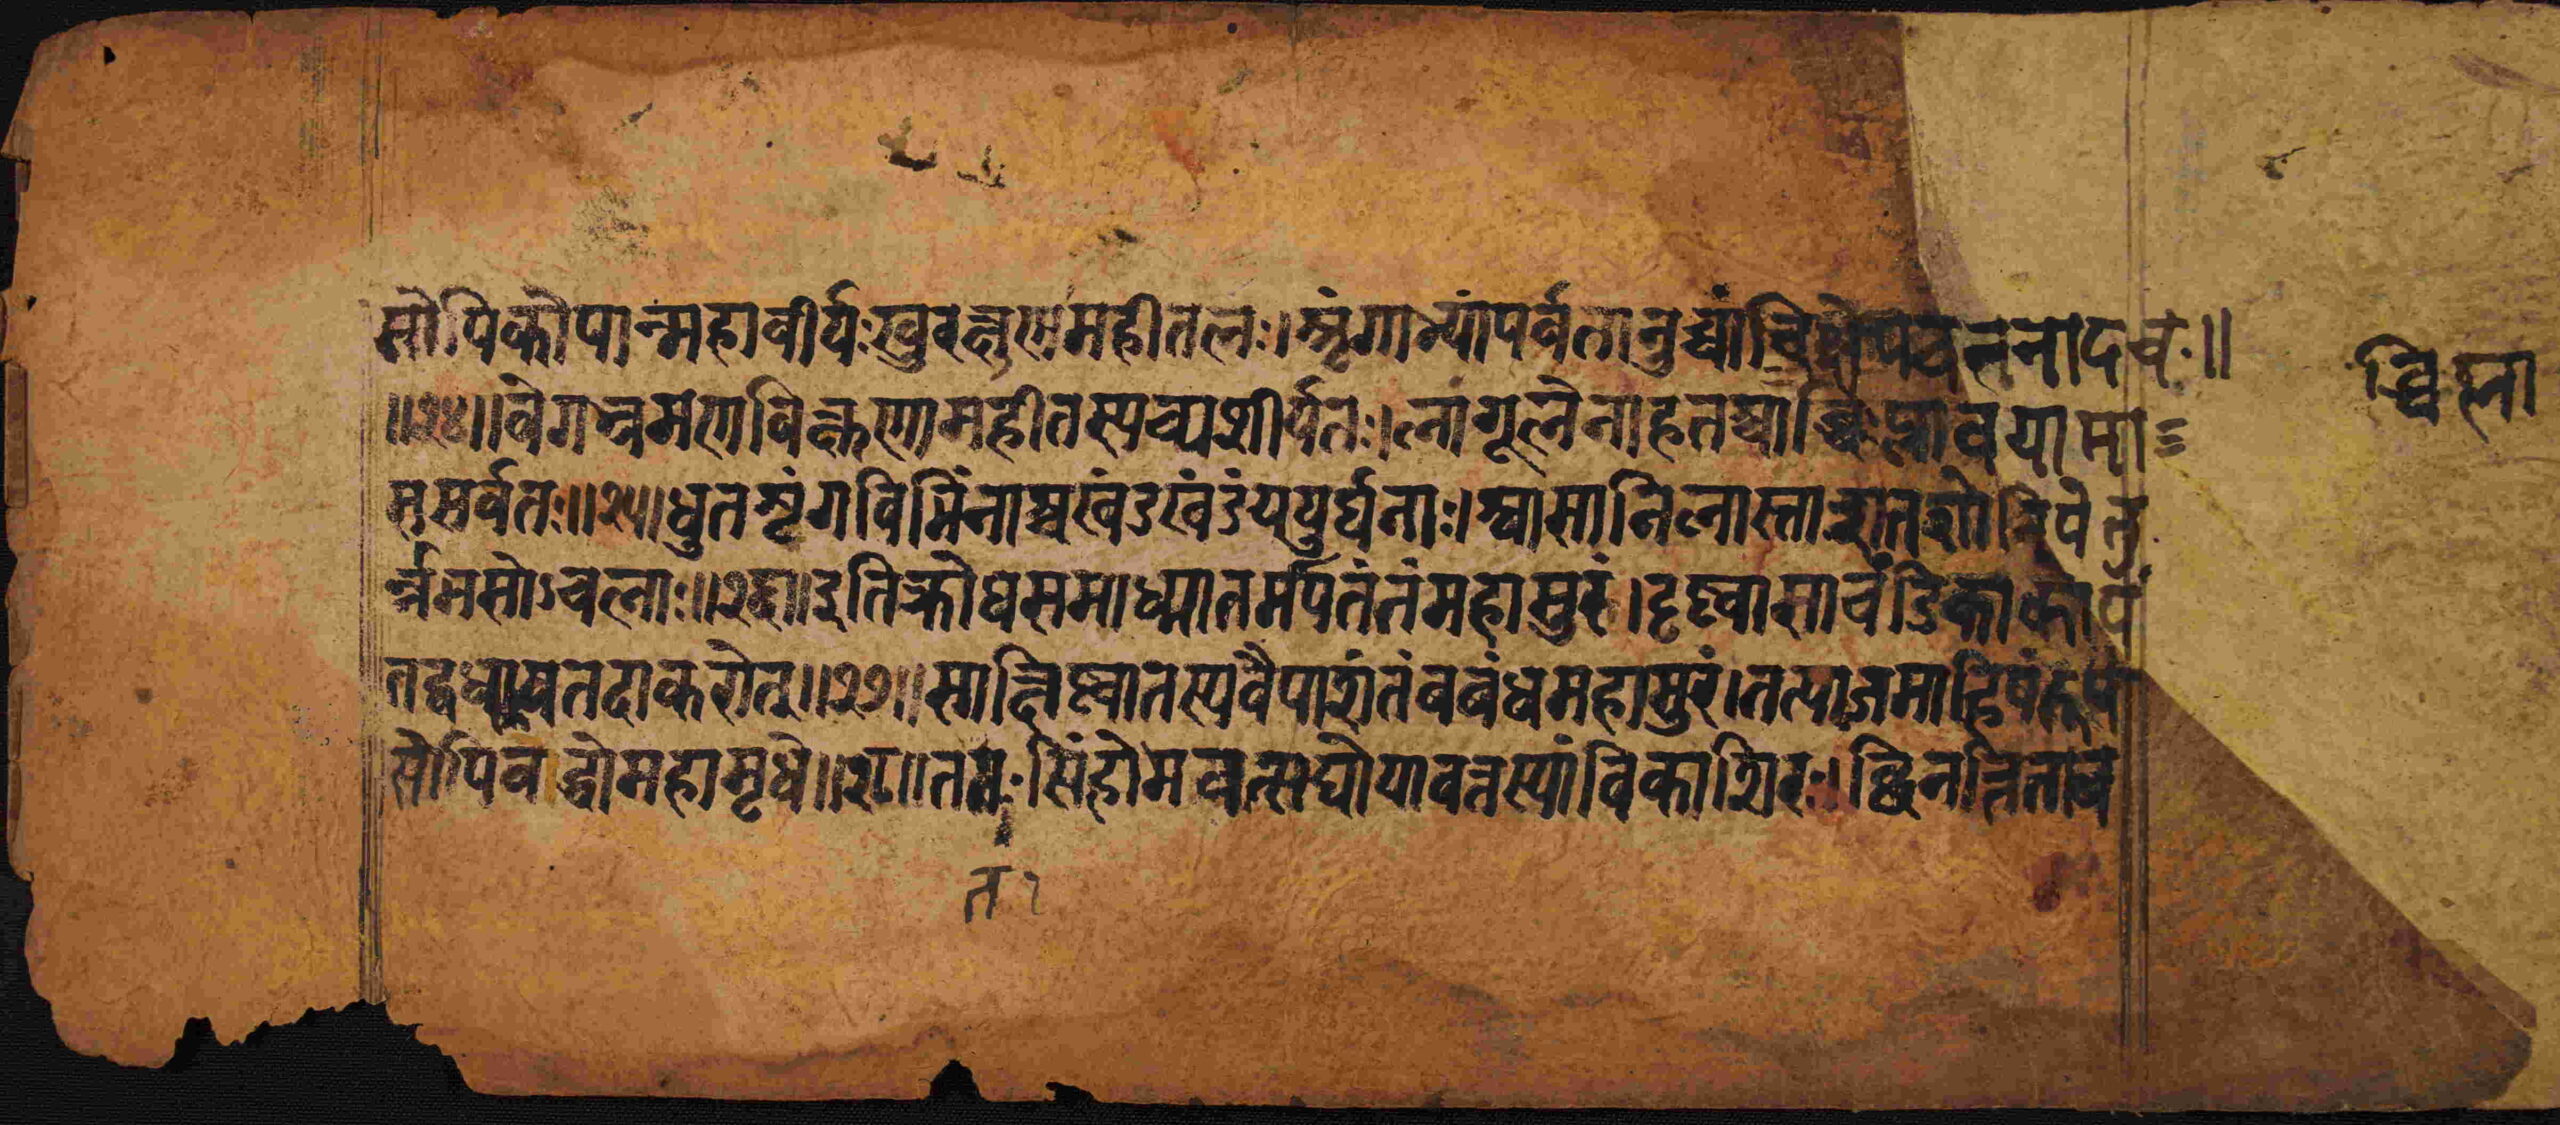 सोपिकोपान्महावीर्यःखुरक्षुण्णमहीतलः।शृंगाभ्यांपर्वतानुच्चांश्चिक्षेपचलनादचः॥
॥२४॥वेगभ्रमणविक्षुण्णामहीतस्यव्यशीर्यतः।लांगूलेनाहतश्चाब्धिःप्लावयामा
ससर्वतः॥२५॥धुतशृंगविभिंनाश्चखंडखंडंययुर्घनाः।श्वासानिलास्ताशतशोनिपेतु
र्न्नभसोऽचलाः॥२६॥इतिक्रोधसमाध्मातमपतंतंमहासुरं।दृष्ट्वासाचंडिकाकोपं
तद्वधायतदाकरोत्॥२७॥साक्षिप्त्वातस्यवैपाशंतंबबंधमहासुरं।तत्याजमाहिषंरूपं
सोपिबद्धोमहामृधे॥२८॥ततःसिंहोभवत्सद्योयावत्तस्यांविकाशिरः।छिनत्तिताव
त १